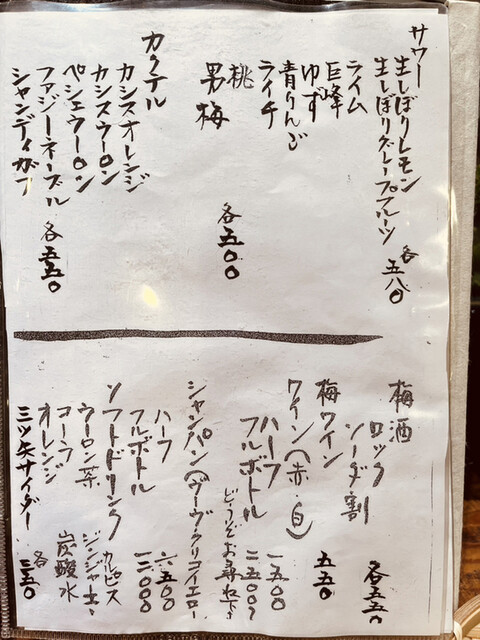 サワー
生しぼりレモン
生しぼりグレープフルーツ
各五八〇
ライム
巨峰
ゆず
青りんご
ライチ
桃
男梅
各五〇〇
カクテル
カシスオレンジ
カシスウーロン
ペシェウーロン
ファジーネーブル
シャンディガフ
各五五〇
梅酒
ロック
ソーダ割
各五五〇
梅ワイン
五五〇
ワイン（赤・白）
ハーフ 一五〇〇
フルボトル 二五〇〇
どうぞお尋ね下さい
シャンパン（ヴーヴ・クリコイエロー
ハーフ 六五〇〇
フルボトル 一二〇〇〇
ソフトドリンク
ウーロン茶
コーラ
オレンジ
三ツ矢サイダー
カルピス
ジンジャエー
炭酸水
各三五〇